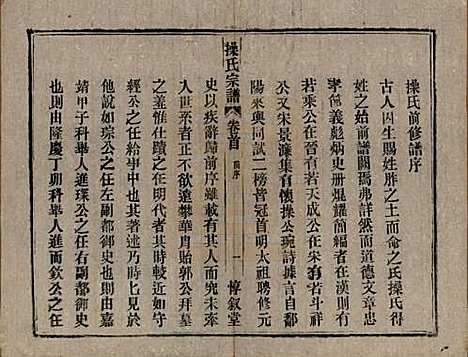 操氏前修譜序
古人因生賜姓胙之土而命之氏操氏得
姓之始前譜闕焉弗詳然而道德文章忠
孝節義彪炳史册焜耀前編者在漢則有
若乘公在晉則有若天成公在宋有若斗祥
公又宋景濂集有懷操公琬詩據言自鄱
陽來與同試二榜皆冠首明太祖聘修元
操氏宗譜
卷首
舊序
一
惇敘堂
史以疾辭歸前序雖載有其人而究未牽
入世系者正不欲遠攀華胄貽郭公拜墓
之差惟仕蹟之在明代者其事較近如永
樂公之任給事中也其著述乃時已見於
他說如琮公之任左副都御史也則由嘉
靖甲子科舉人進璅公之任右副都御史
也則由隆慶丁卯科舉人進而欽公之任